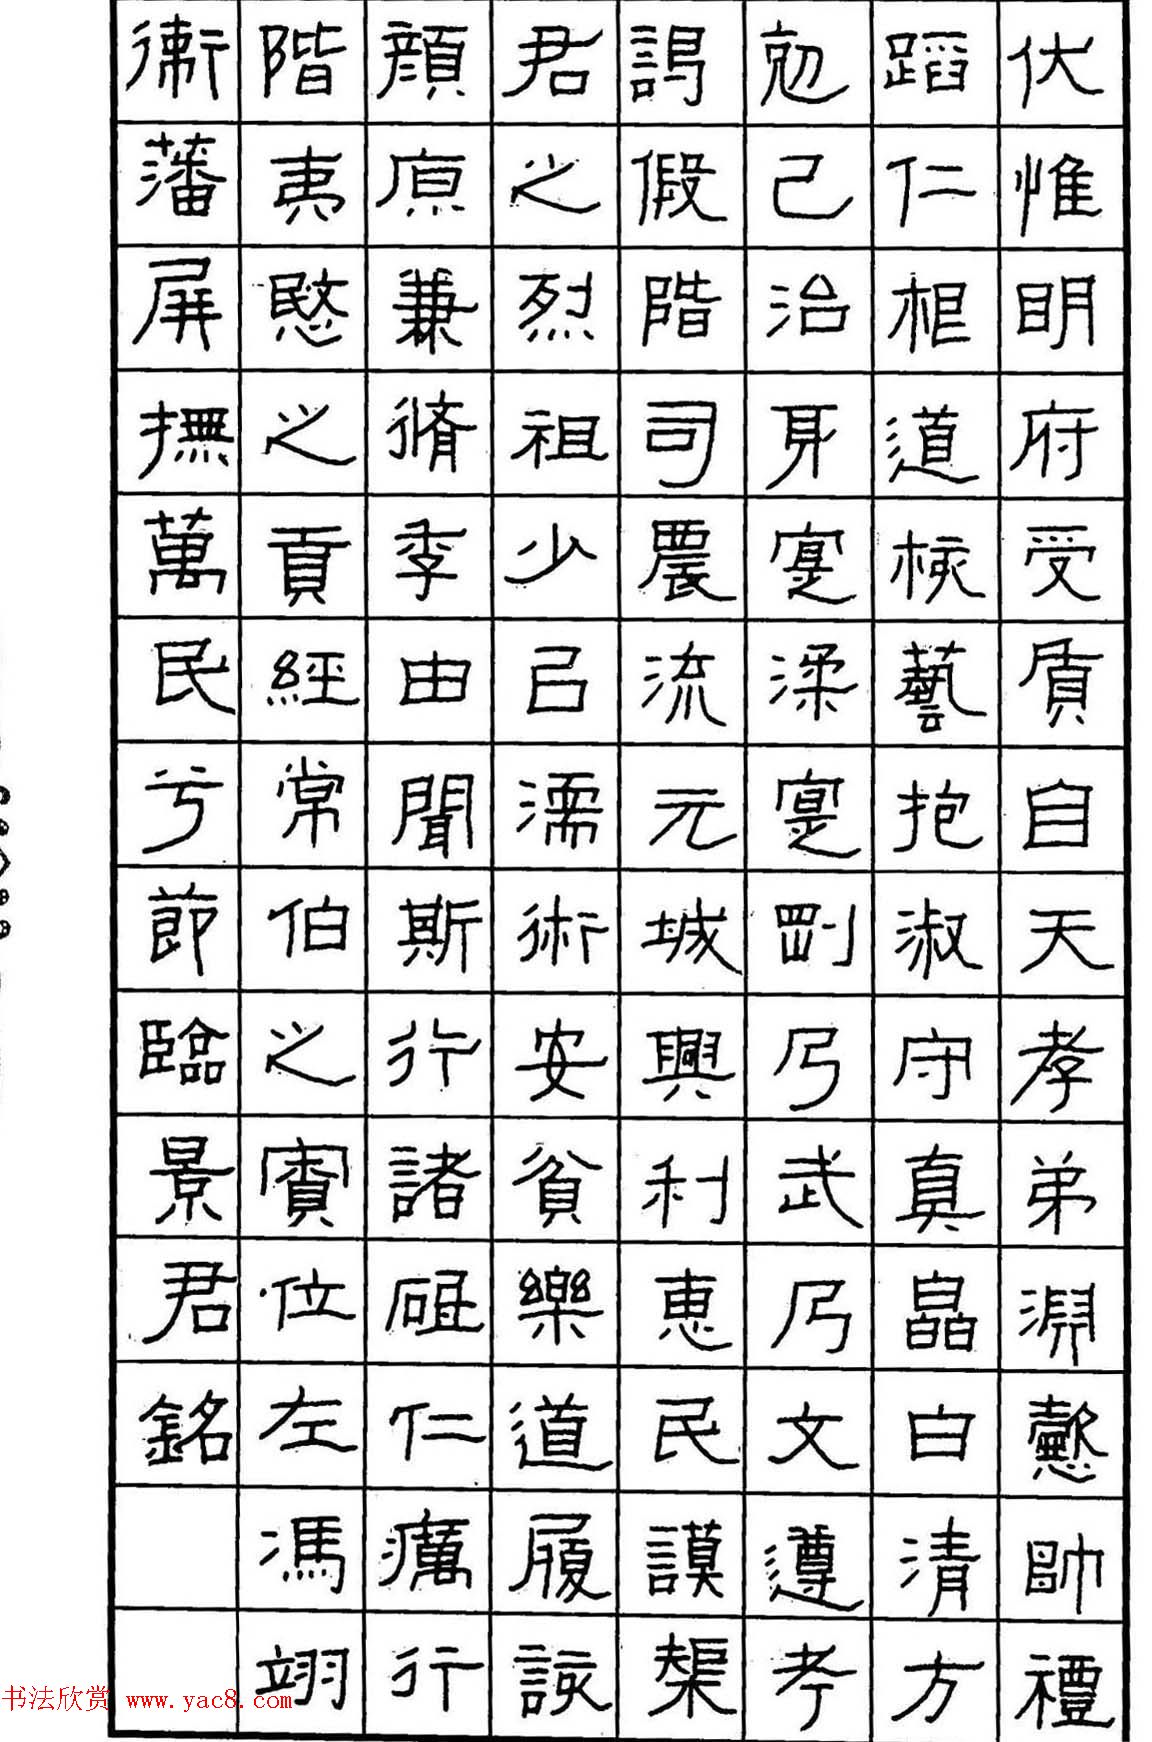 伏惟明府受質自天孝弟淵懿帥禮
蹈仁根道核藝抱淑守真皛白清方
剋己治身寔柔寔剛乃武乃文遵考
謁假階司農流元城興利惠民謨榘
君之烈祖少吕濡術安貧樂道履該
顏原兼脩季由聞斯行諸砥仁癘行
階夷愍之貢經常伯之寮位左馮翊
衝藩屏撫萬民兮節臨景君銘
书法欣赏 www.yac8.com